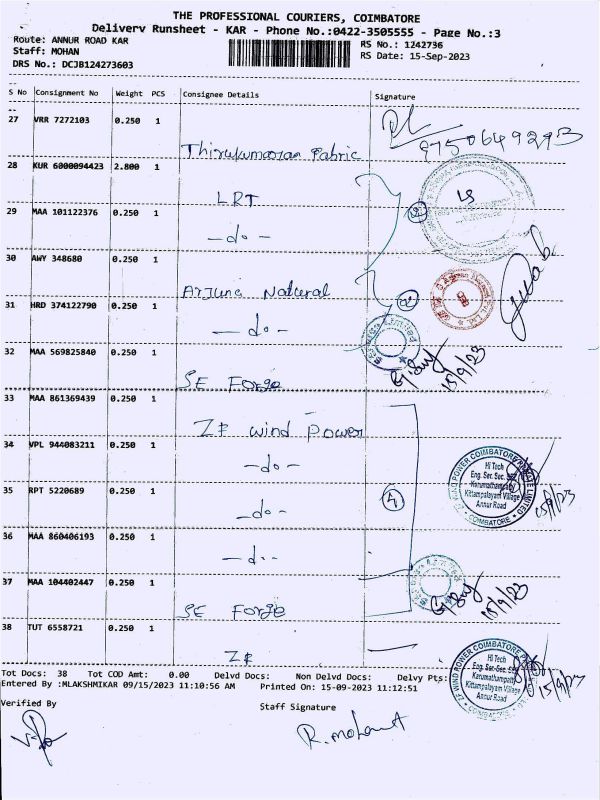 THE PROFESSIONAL COURIERS, COIMBATORE
Delivery Runsheet - KAR - Phone No.:0422-3505555 - Page No.:3
Route: ANNUR ROAD KAR
RS No.: 1242736
Staff: MOHAN
RS Date: 15-Sep-2023
DRS No.: DCJB124273603
S No Consignment No Weight PCS Consignee Details Signature
27 VRR 7272103 0.250 1
9750649293
Thirukumaran Fabric
28 KUR 6000094423 2.800 1
LRT
29 MAA 101122376 0.250 1
-do-
30 AWY 348680 0.250 1
Arjuna Natural
31 HRD 374122790 0.250 1
-do-
32 MAA 569825840 0.250 1
15/9/23
SE Forge
33 MAA 861369439 0.250 1
ZF wind power
34 VPL 944083211 0.250 1
-do-
ZF WIND POWER COIMBATORE PRIVATE LIMITED
Hi Tech
Eng. Ser. Sec.
Karumathampatty
Kittampalayam Village
Annur Road
COIMBATORE
15/9/23
35 RPT 5220689 0.250 1
4
-do-
36 MAA 860406193 0.250 1
-do-
37 MAA 104402447 0.250 1
15/9/23
SE Forge
38 TUT 6558721 0.250 1
ZF
ZF WIND POWER COIMBATORE
Hi Tech
Eng. Ser. Sec.
Karumathampatty
Kittampalayam Village
Annur Road
15/9/23
Tot Docs: 38 Tot COD Amt: 0.00 Delvd Docs: Non Delvd Docs: Delvy Pts:
Entered By :MLAKSHMIKAR 09/15/2023 11:10:56 AM Printed On: 15-09-2023 11:12:51
Verified By
Staff Signature
R. mohan